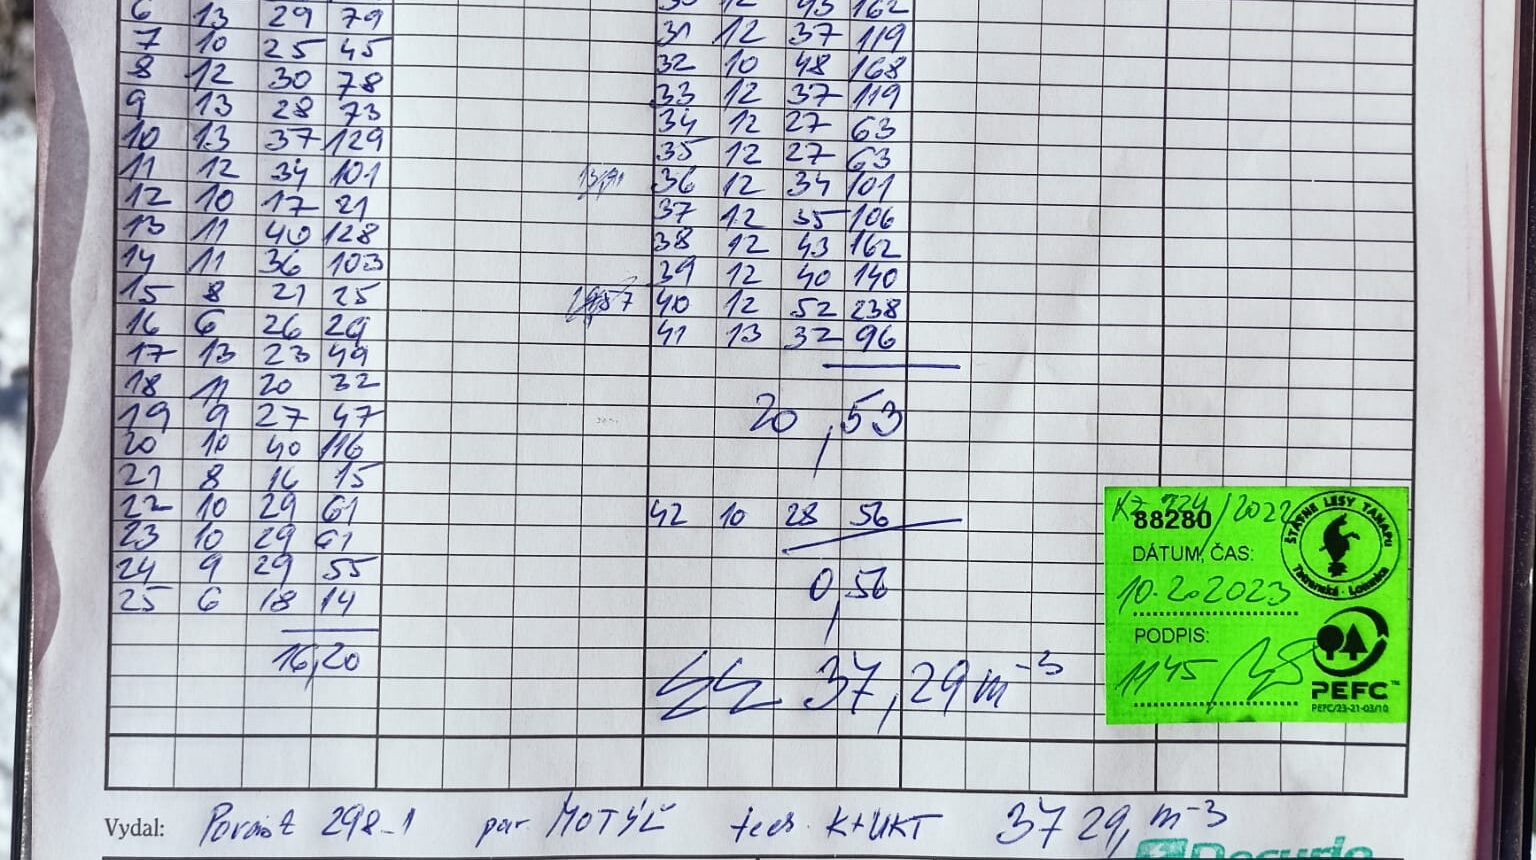 6 13 29 79
7 10 25 45
8 12 30 78
9 13 28 73
10 13 37 129
11 12 34 101
12 10 17 21
13 11 40 128
14 11 36 103
15 8 21 25
16 6 26 29
17 13 23 49
18 11 20 32
19 9 27 47
20 10 40 116
21 8 16 15
22 10 29 61
23 10 29 61
24 9 29 55
25 6 18 14
16,20
12 43 162
31 12 37 119
32 10 48 168
33 12 37 119
34 12 27 63
35 12 27 63
36 12 34 101
37 12 35 106
38 12 43 162
39 12 40 140
40 12 52 238
41 13 32 96
20,53
42 10 28 56
0,56
37,29 m-3
/2022
88280
ŠTÁTNE LESY TANAPU
Tatranská Lomnica
DÁTUM, ČAS:
10.2.2023
PODPIS:
1145
PEFC™
PEFC/23-21-03/10
Vydal: Porast 298-1 par MOTÝĽ 37 29, m-3